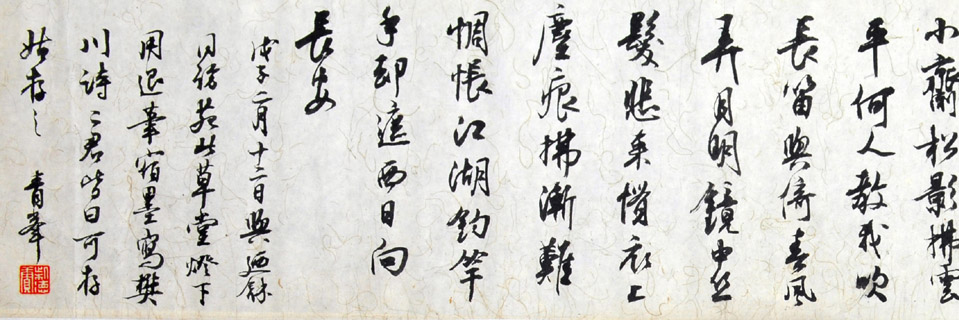 小齋松影拂雲
平何人教我吹
長笛與倚春風
弄月明鏡中丝
髮悲来惯衣上
塵痕拂漸難
惆悵江湖釣竿
手卻遮西日向
長安
戊子二月十二日與
同 草堂燈下
用退筆宿墨寫樊
川詩二君皆曰可存
姑存之 青峯